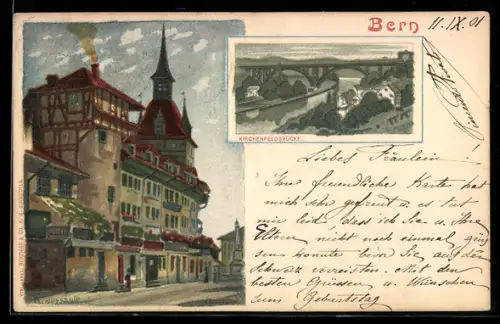 Bern
11. IX. 01
KIRCHENFELDBRÜCKE.
Liebes Fräulein!
Ihre freundliche Karte hat
mich sehr gefreut u. es tut
mir leid dass ich Sie u. Ihre
Eltern nicht noch einmal
konnte bevor Sie aus der
Schweiz verreisten. Mit den
besten Grüssen u. Wünschen
zum Geburtstag